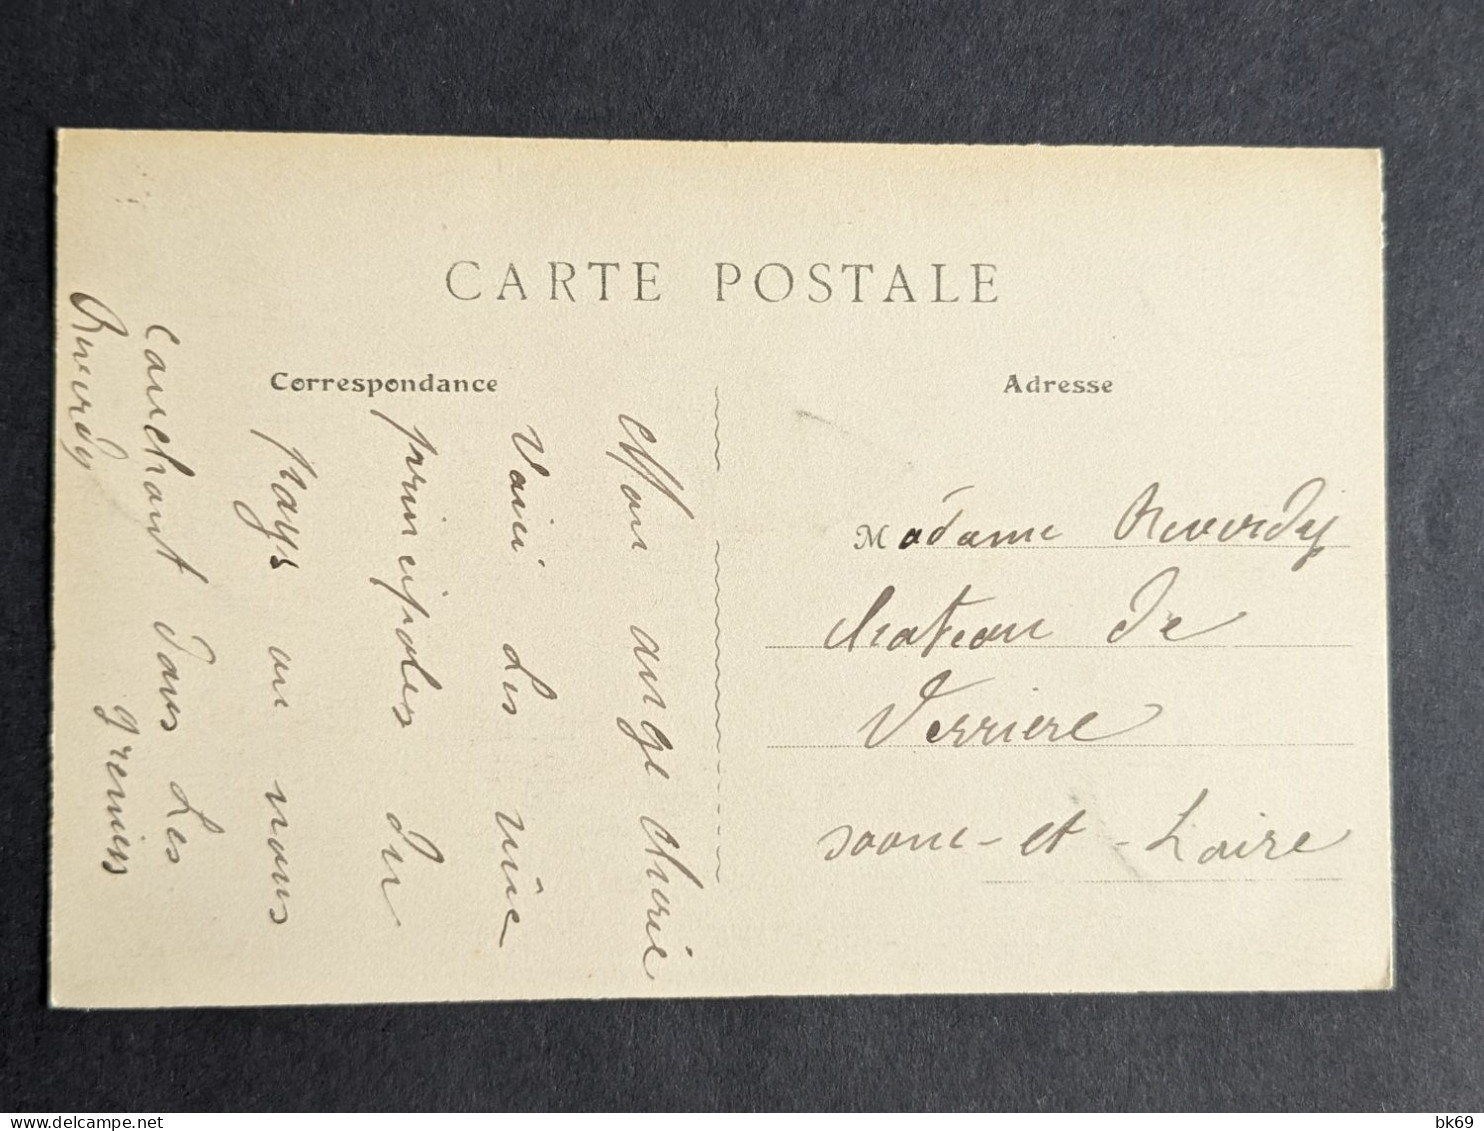 CARTE POSTALE
Correspondance
Adresse
Mon ange chérie
Voici les vûe
principales du
pays ou nous
couchont dans les
greniers
Reverdy
Madame Reverdy
chateau de
Verriere
Saone-et-Loire
bk69